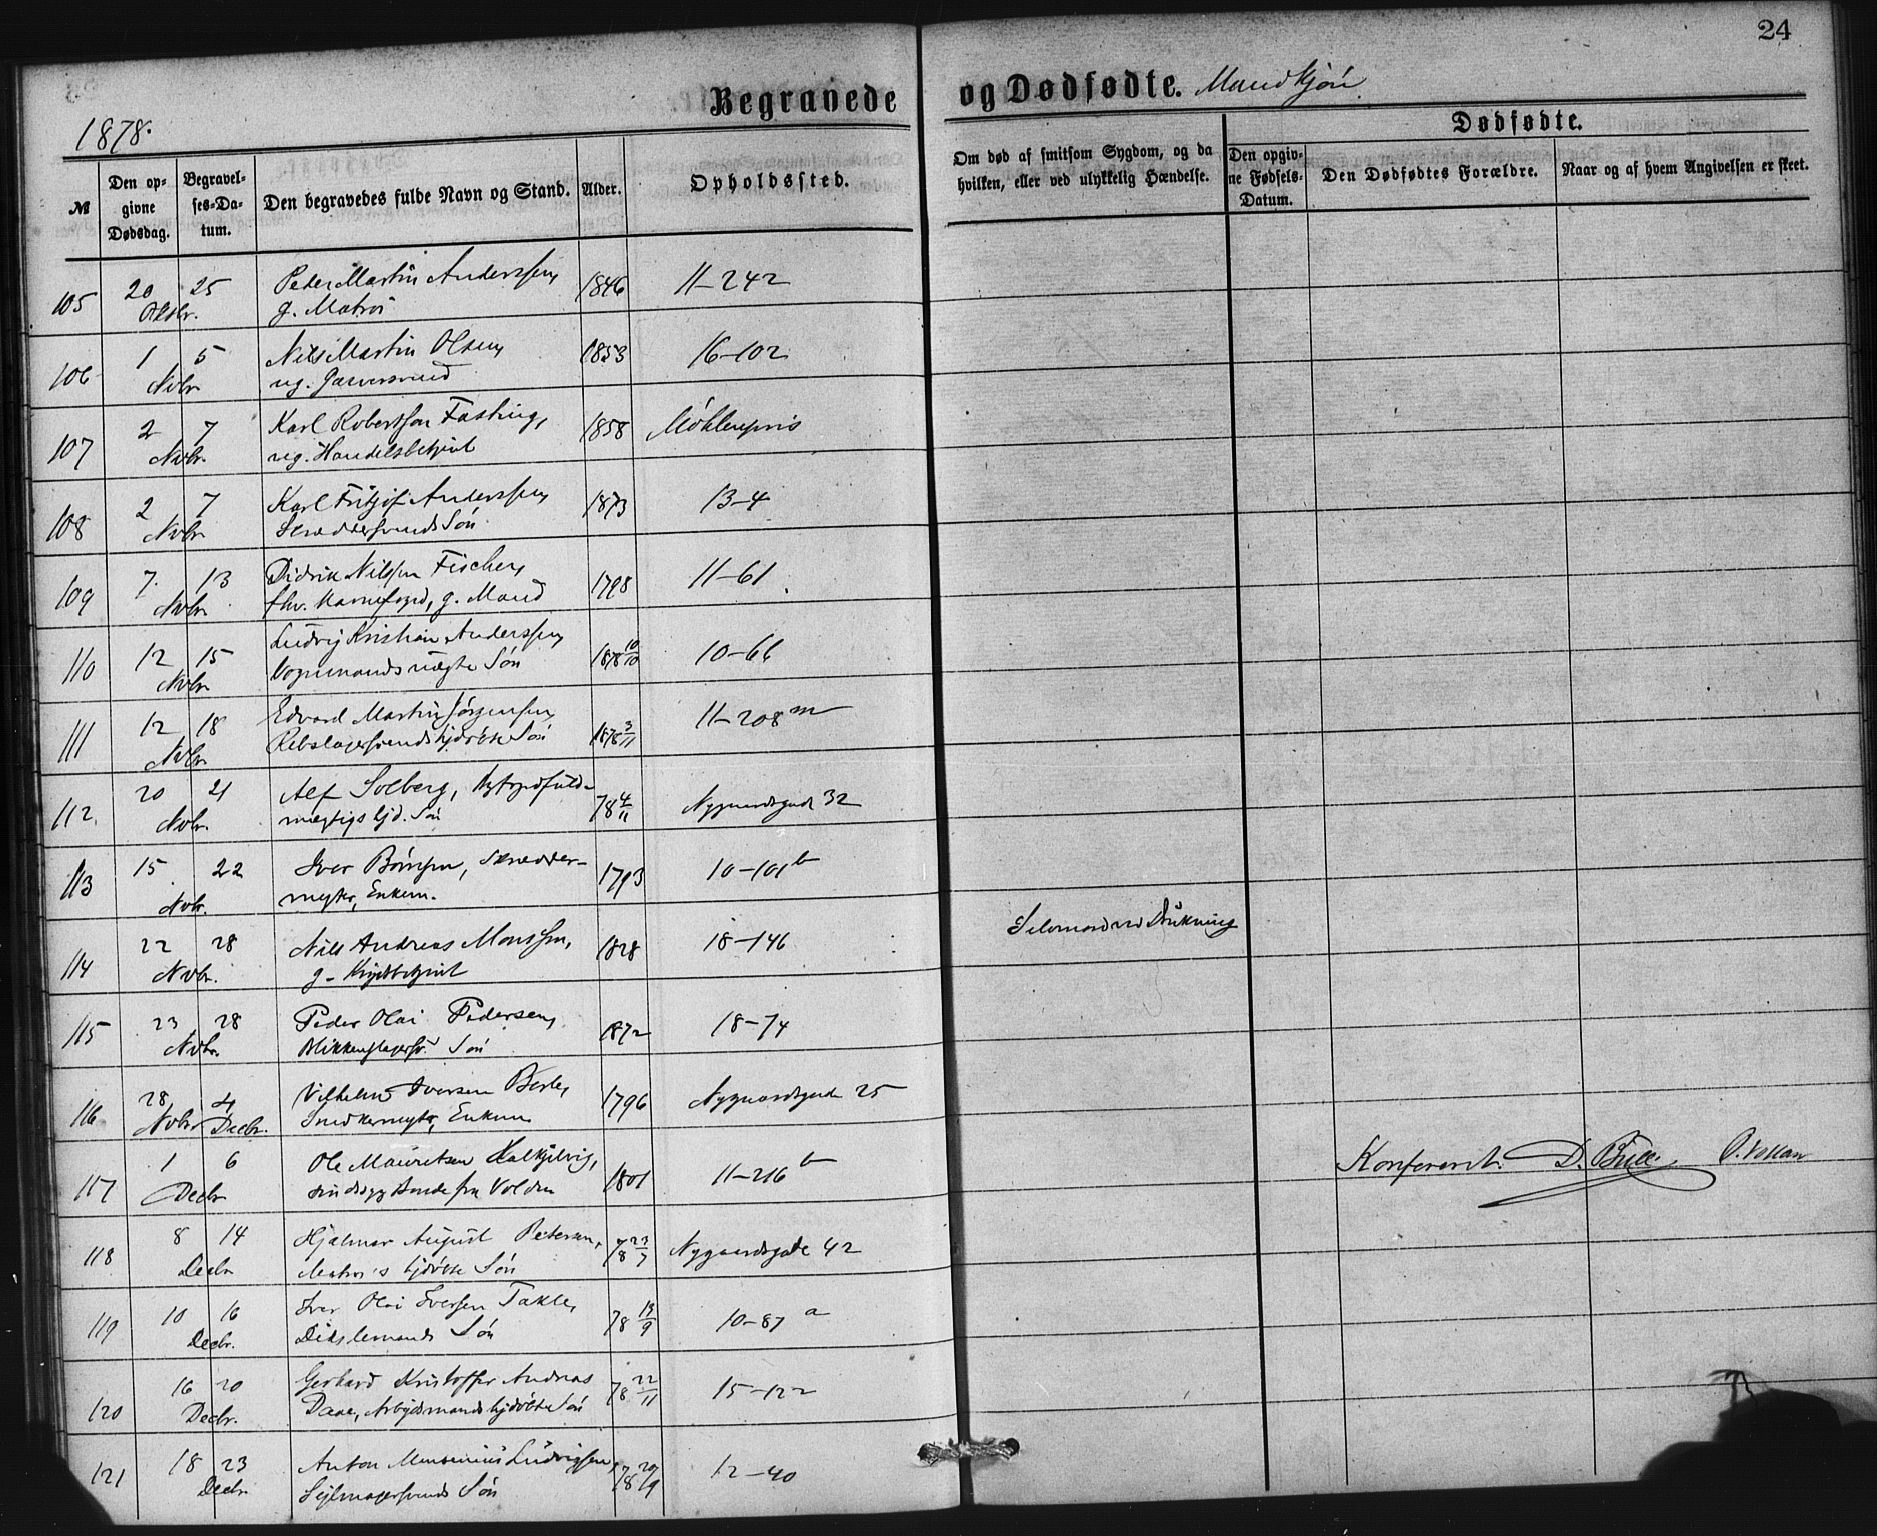 24
Begravede og Dødfødte. Mandkjøn
1878.
№
Den opgivne Dødsdag.
Begravelses-Datum.
Den begravedes fulde Navn og Stand.
Alder.
Opholdssted.
Om død af smitsom Sygdom, og da hvilken, eller ved ulykkelig Hændelse.
Dødfødte.
Den opgivne Fødsels-Datum.
Den Dødfødtes Forældre.
Naar og af hvem Angivelsen er skeet.
105 20 25 Peder Martin Anderssen, 1846 11-242
Oktbr. g. Matros
106 1 5 Nils Martin Olsen, 1853 16-102
Nvbr ug. Garversvend
107 2 7 Karl Robertson Fasting, 1858 Møhlenpris
Nvbr. ug. Handelsbetjent
108 2 7 Karl Fritjof Anderssen, 1873 13-4
Nvbr Skræddersvends Søn
109 7. 13 Didrik Nilssen Fischer, 1798 11-61
Nvbr. fhv. Havnefoged, g. Mand
110 12 15 Ludvig Kristian Anderssen, 1878 10/10 10-66
Nvbr Vognmands uægte Søn
111 12 18 Edvard Martin Jørgensen, 1878 3/11 11-208 m
Nvbr Rebslagersvends hjdøbte Søn
112. 20 21 Alf Solberg, 78 4/11 Nygaardsgade 32
Nvbr. mægtigs hjd. Søn
113 15 22 Iver Børgesen, Skrædder- 1793 10-101 b
Nvbr. mester, Enkem.
114 22 28 Nils Andreas Monssen, 1828 18-146 Selvmord ved Drukning
Nvbr. g.
115 23 28 Peder Olai Pedersen, 1872 18-74
Nvbr. Blikkenslagersv. Søn
116 28 4 Vilhelm Iversen Berle, 1796 Nygaardsgade 25
Nvbr Decbr. Snedkermester, Enkem.
117 1 6 Ole Mauritsen 1801 11-216 b Konfererit. D. Bull. O. Vollan
Decbr
118 8 14 Hjalmar August Petersen, 78 23/7 Nygaardsgade 42
Decbr Matros's hjdøbte Søn
119 10 16 Iver Olai Iversen Takle, 78 19/9 10-87 a
Decbr. Søn
120 16 20 Gerhard Kristoffer Andreas 78 22/11 15-122
Decbr. Daae, Arbejdsmands hjdøbte Søn
121 18 23 Anton Monsenius Ludvigsen, 78 20/9 12-40
Decbr Sejlmagersvends Søn